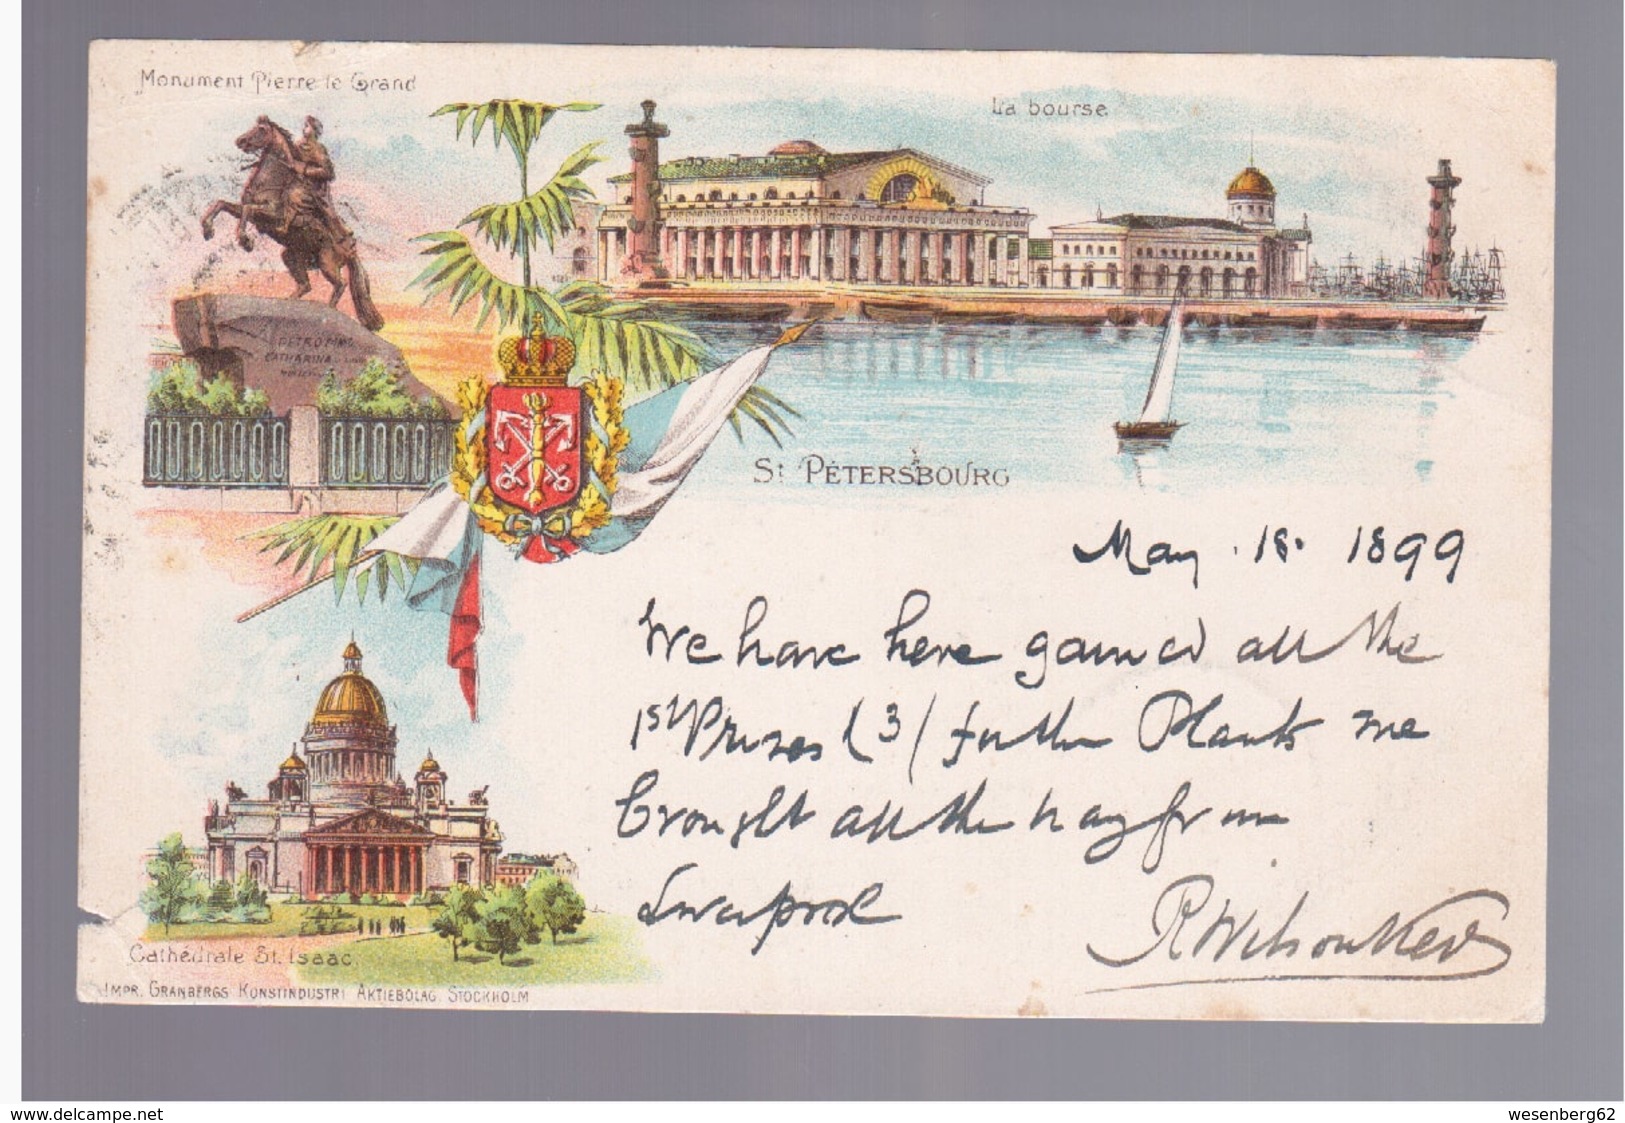 Monument Pierre le Grand
La bourse
PETRO PRIMO
CATHARINA
St PÉTERSBOURG
May 18. 1899
We have here gained all the
1st Prizes (3) for the Plants we
brought all the way from
Liverpool
R Wilson Ker
Cathédrale St. Isaac.
IMPR. GRANBERGS KONSTINDUSTRI AKTIEBOLAG. STOCKHOLM
www.delcampe.net
wesenberg62